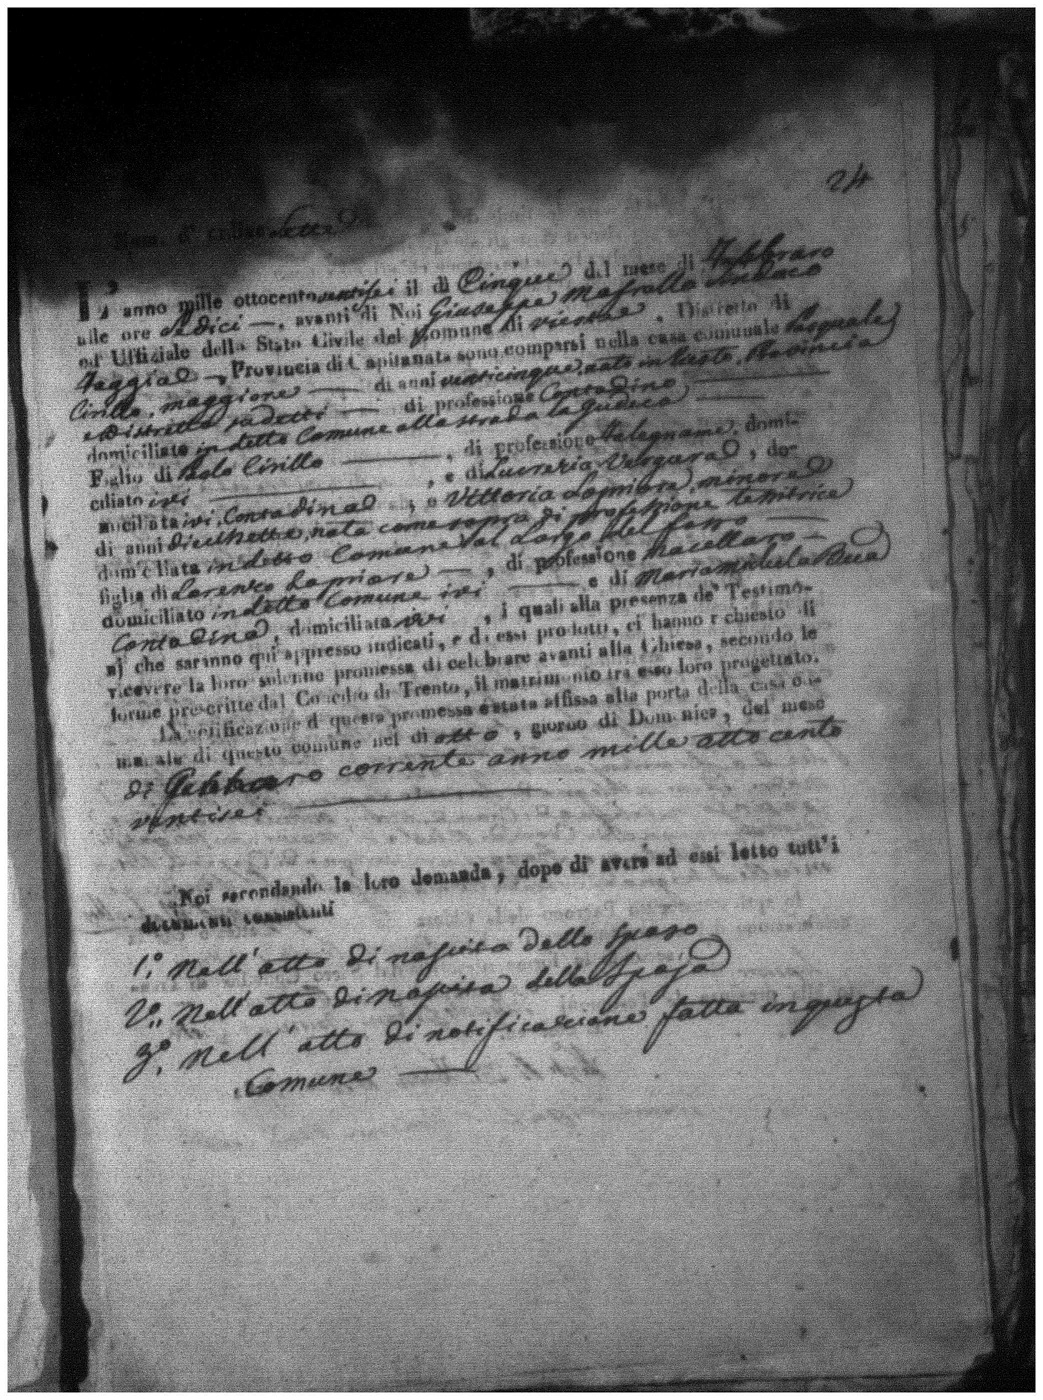 24
Num. d' ordine sette
L' anno mille ottocento ventisei il dì Cinque del mese di Febbraro
alle ore sedici —, avanti di Noi Giuseppe Masrolla Sindaco
ed Uffiziale della Stato Civile del Comune di Viestne . Distretto di
Foggia —, Provincia di Capitanata sono comparsi nella casa comunale Pasquale
Cirillo, maggiore — di anni venticinque, nato in Provincia
e Distretto sudetti — di professione Contadino —
domiciliato in detto Comune alla strada la Giudeca —
Figlio di Paolo Cirillo —, di professione Falegname, domi-
ciliato ivi — , e di Lucrezia Vergara , do-
miciliata ivi, Contadina , e Vittoria Lapriore, minore
di anni diecisette, nata come sopra di professione tessitrice
domiciliata in detto Comune al Largo del fosso —
figlia di Lorenzo Lapriore —, di professione Macellaro —
domiciliato in detto Comune ivi — e di Mariamichela Bua
Contadina, domiciliata ivi , i quali alla presenza de' Testimo-
nj che saranno qui appresso indicati, e di essi prodotti, ci hanno richiesto di
ricevere la loro solenne promessa di celebrare avanti alla Chiesa, secondo le
forme prescritte dal Concilio di Trento, il matrimonio tra esso loro progettato.
La notificazione di questa promessa è stata affissa alla porta della casa co-
munale di questo comune nel dì otto , giorno di Domenica, del mese
di Febbraro corrente anno mille ottocento
ventisei —
Noi secondando la loro domanda, dopo di avere ad essi letto tutt'i
documenti consistenti
1.° Nell' atto di nascita dello sposo
2.° Nell' atto di nascita della Sposa
3.° Nell' atto di notificazione fatta in questa
Comune —